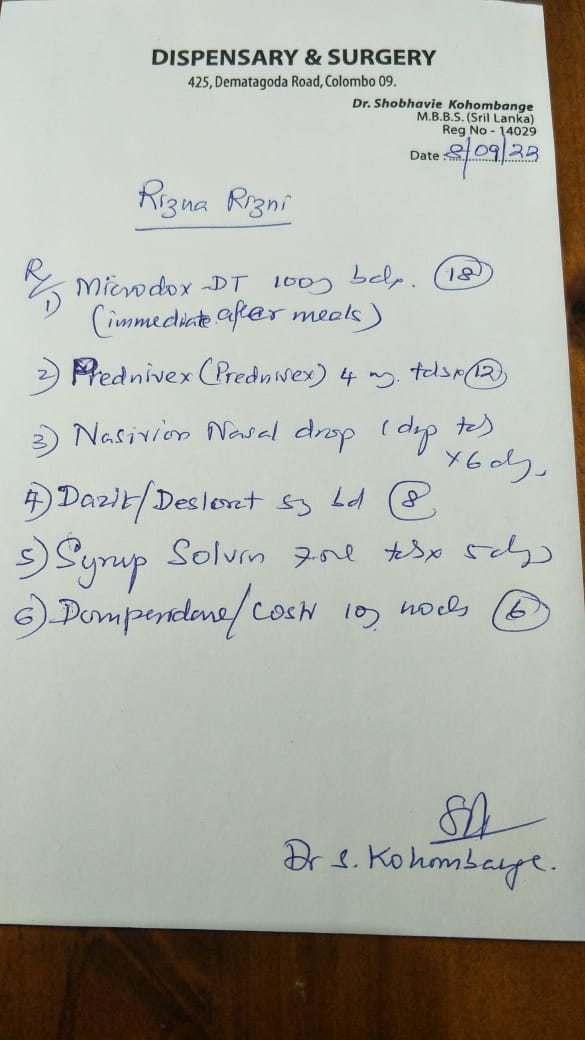 DISPENSARY & SURGERY
425, Dematagoda Road, Colombo 09.
Dr. Shobhavie Kohombange
M.B.B.S. (Sril Lanka)
Reg No - 14029
Date 8/09/23
Rizna Rizni
R/
1) Microdox DT 100g (18)
(immediate after meals)
2) Prednivex (Prednivex) 4 mg. tds x (12)
3) Nasivion Nasal drop 1 drp tds
x 6 dys
4) Dazit/Deslorat 5g bd (8)
5) Syrup Solvin tds x 5 dys
6) Domperidone/ 10g (6)
Dr S. Kohombange.